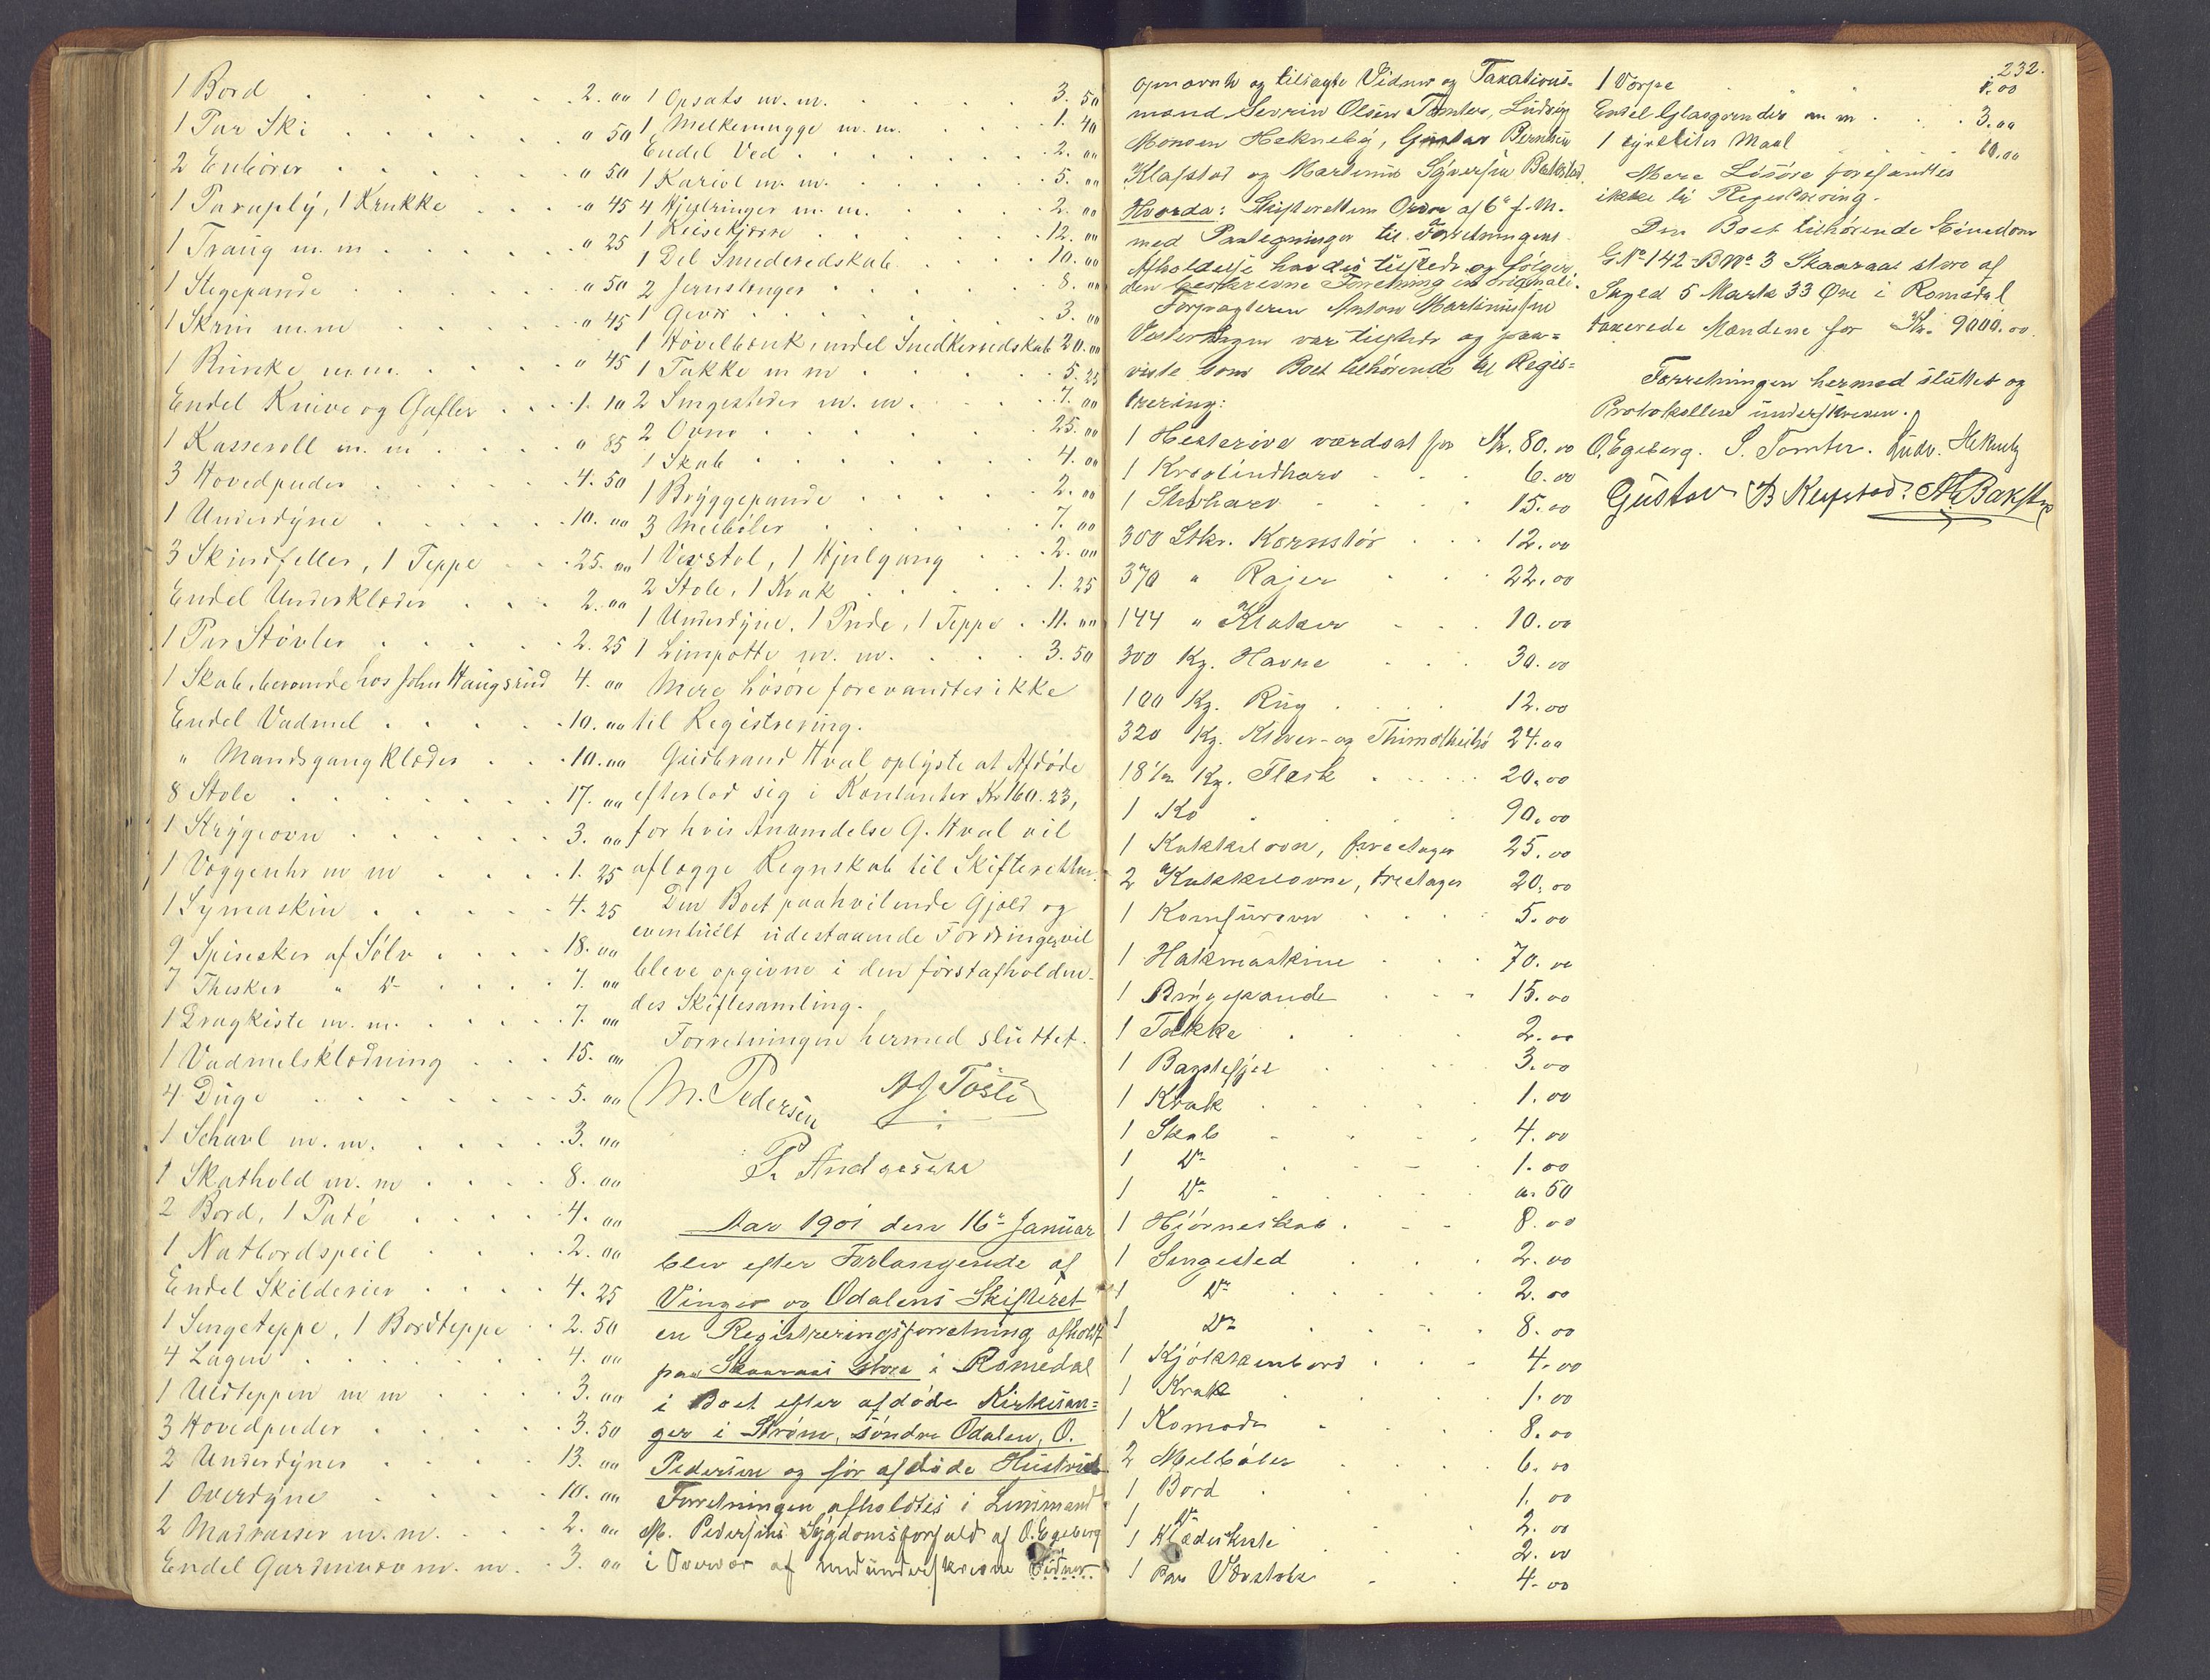 1 Bord . . . . . . 2. 00
1 Par Ski . . . . . " 50
2 . . . . . " 50
1 Paraply, 1 Krukke . . " 45
1 Traug m. m. . . . . " 25
1 Stegepande . . . . " 50
1 Skrin m. m. . . . . " 45
1 m. m. . . . . " 45
Endel Knive og Gafler . . . 1. 10
1 Kasseroll m. m. . . . " 85
3 Hovedpuder . . . . . 4. 50
1 Underdyne . . . . . 10. 00
3 Skindfeller, 1 Teppe . . 25. 00
Endel Underklæder . . . 2. 00
1 Par Støvler . . . . . 2. 25
1 Skab, beroende hos John Haugsrud 4. 00
Endel Vadmel . . . . . 10. 00
" Mandsgangklæder . . . 10. 00
8 Stole . . . . . . . 17. 00
1 Strygeovn . . . . . . 3. 00
1 Væggeuhr m m . . . . 1. 25
1 Symaskin . . . . . 4. 25
9 Spiseskér af Sølv . . . . 18. 00
7 Theskér " Do . . . . 7. 00
1 Dragkiste m. m. . . . . 7. 00
1 Vadmelsklædning . . . 15. 00
4 Duge . . . . . . . 5. 00
1 Schavl m. m. . . . . 3. 00
1 Skathold m. m . . . . 8. 00
2 Bord, 1 . . . . . 4. 00
1 Natbordspeil . . . . 2. 00
Endel Skilderier . . . . 4. 25
1 Sengeteppe, 1 Bordteppe . . 2. 50
4 Lagen . . . . . . . 4. 00
1 Uldteppen m m . . . . 3. 00
3 Hovedpuder . . . . . 3. 50
2 Underdyner . . . . . 13. 00
1 Overdyne . . . . . 10. 00
2 Madrasser m. m. . . . 2. 00
Endel Gardiner m. m. . 3. 00
1 Opsats m. m. . . . . . 3. 50
1 Melkemugge m. m. . . . 1. 40
Endel Ved . . . . . . 2. 00
1 Kariol m. m. . . . . . 5. 00
4 Hjulringer m. m. . . . . 2. 00
1 Reisekjærre . . . . . 12. 00
1 Del Smederedskab . . . 10. 00
2 Jernstenger . . . . . 8. 00
1 Gevær . . . . . . . 3. 00
1 Høvelbænk, endel Snedkerredskab 20. 00
1 Takke m m . . . . . 5. 25
2 Sengesteder m. m. . . . 7. 00
2 Ovne . . . . . . . 25. 00
1 Skab . . . . . . . 4. 00
1 Bryggepande . . . . . 2. 00
3 Melbøler . . . . . . 7. 00
1 Vævstol, 1 Hjulgang . . . 2. 00
2 Stole, 1 Krak . . . . . 1. 25
1 Underdyne, 1 Pude, 1 Teppe . . 11. 00
1 Limpotte m. m. . . . . 3. 50
Mere Løsøre forevandtes ikke
til Registrering.
Gudbrand Hval oplyste at Afdøde
efterlod sig i Kontanter Kr 160. 23,
for hvis Anvendelse G. Hval vil
aflægge Regnskab til Skifteretten.
Den Boet paahvilende Gjæld og
eventuelt udestaaende Fordringer vil
bleve opgivne i den førstafholden-
des Skiftesamling.
Forretningen hermed sluttet.
M. Pedersen
P. Andresen
Aar 1901 den 16de Januar
blev efter Forlangende af
Vinger og Odalens Skifteret
en Registreringsforretning afholdt
paa Skaaraas store i Romedal
i Boet efter afdøde Kirkesan=
ger i Strøm, søndre Odalen, O.
Pedersen og før afdøde Hustru
Forretningen afholdtes i Lensmand
M. Pedersens Sygdomsforfald af O. Egeberg
i Overvær af medunderskrevne Vidner
232.
opnævnte og tilsagte Vidner og Taxations-
mænd Severin Olsen Tomter, Ludvig
Monsen Hekneby, Gustav Berntsen
Klafstad og Martinus Syversen Bakstad.
Hvorda: Skifterettens Ordre af 6te f. M.
med Paategninger til Forretningens
Afholdelse havdes tilstede og følger
den beskrevne Forretning in originali.
Forpagteren Anton Martinussen
Vesterhagen var tilstede og paa=
viste som Boet tilhørende til Regis=
trering:
1 Hesterive værdsat for Kr. 80. 00
1 Kroglindharv . . 6. 00
1 Stivharv . . . 15. 00
300 Stkr. Kornstør . . . 12. 00
370 " Rajer . . . 22. 00
144 " . . . 10. 00
300 Kg. Havre . . . 30. 00
100 Kg. Rug . . . . 12. 00
320 Kg. Kløver- og Thimotheihø 24. 00
18 1/2 Kg. Flesk . . . . 20. 00
1 Ko . . . . 90. 00
1 Kakkelovn, fireetager 25. 00
2 Kakkelovne, treetager 20. 00
1 Komfurovn . . . 5. 00
1 Hakmaskine . . . 70. 00
1 Bryggepande . . . 15. 00
1 Takke . . . . 2. 00
1 Bagstefjel . . . . 3. 00
1 Krak . . . . . 1. 00
1 Skab . . . . 4. 00
1 Do . . . . 1. 00
1 Do . . . . 0. 50
1 Hjørneskab . . . 8. 00
1 Sengested . . . 2. 00
1 Do . . . . 2. 00
1 Do . . . . 8. 00
1 Kjøkkenbord . . . 4. 00
1 Krak . . . . 1. 00
1 Komode . . . 8. 00
2 Melbøler . . . 6. 00
1 Bord . . . . 1. 00
1 Do . . . . 2. 00
1 Klædeskiste . . . 2. 00
1 Par Vævstole . . 4. 00
1 Vorpe . . . 1. 00
Endel Glasgrinder m m . . . 3. 00
1 tyveliter Maal . . . 10. 00
Mere Løsøre forefandtes
ikke til Registrering.
Den Boet tilhørende Eiendom
G.No 142 BNo 3 Skaaraas store af
Skyld 5 Mark 33 Øre i Romedal
taxerede Mændene for Kr. 9000. 00
Forretningen hermed sluttet og
Protokollen underskreven.
O. Egeberg. S. Tomter. Ludv. Hekneby
Gustav B Klafstad. M. Bakstad